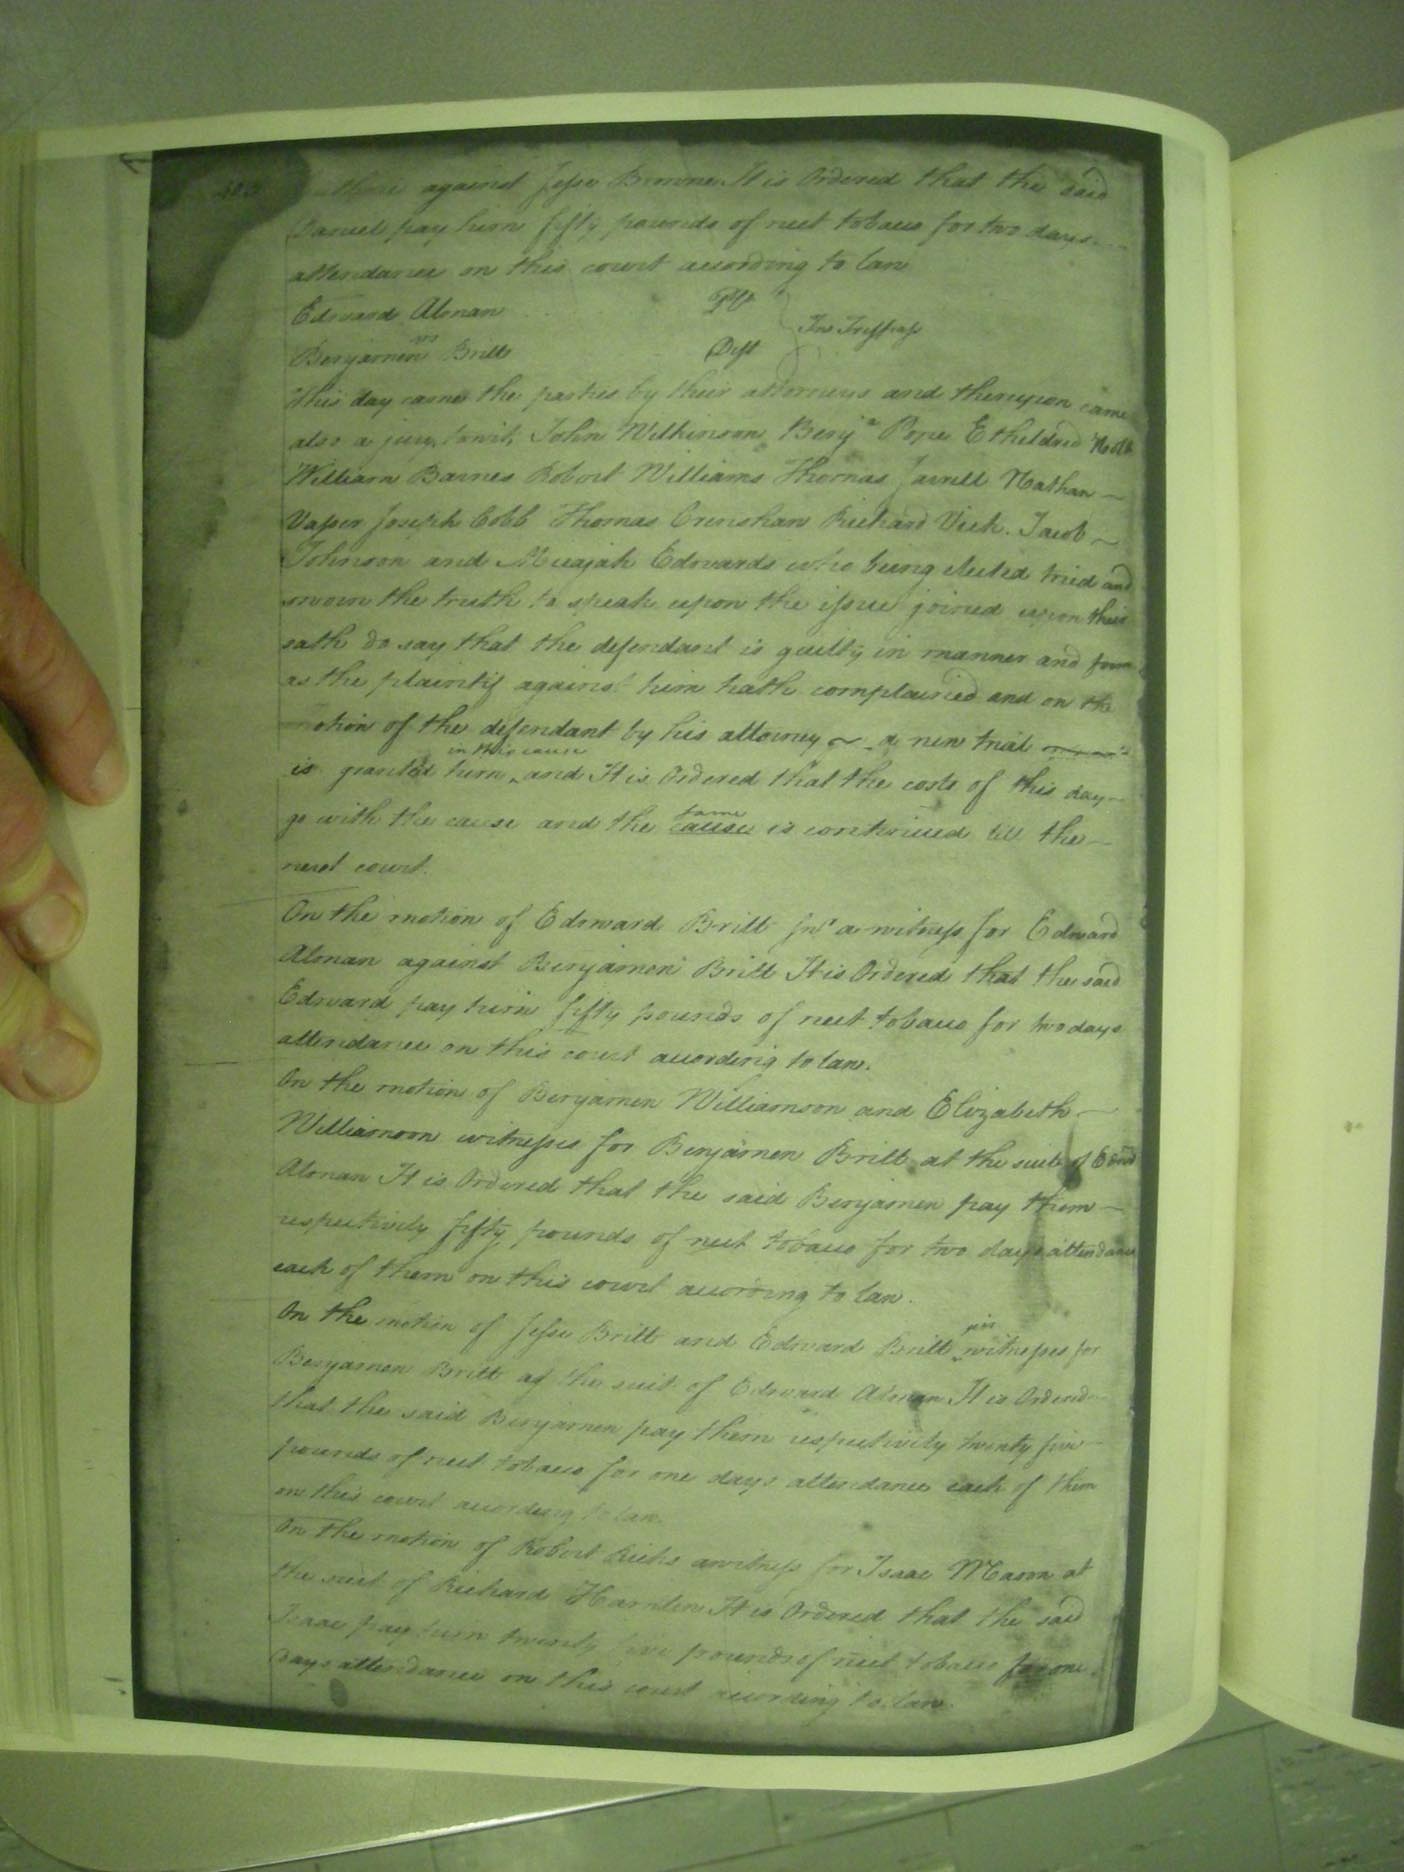 against Jesse Browne It is Ordered that the said
Daniel pay him fifty pounds of neet tobacco for two days
attendance on this court according to law
Edward Alman Plt
vs In Trespass
Benjamen Britt Deft
This day came the parties by their attorneys and thereupon came
also a jury, towit, John Wilkinson Benj.ª Pope Etheldred
William Barnes Robert Williams Thomas Jarrell Nathan
Vasser Joseph Cobb Thomas Crenshaw Richard Vick. Jacob
Johnson and Micajah Edwards who being elected tried and
sworn the truth to speak upon the issue joined upon their
oath do say that the defendant is guilty in manner and form
as the plaintif against him hath complained and on the
motion of the defendant by his attorney a new trial
in this cause
is granted him and It is Ordered that the costs of this day
same
go with the cause and the cause is continued till the
next court.
On the motion of Edward Britt a witness for Edward
Alman against Benjamen Britt It is Ordered that the said
Edward pay him fifty pounds of neet tobacco for two days
attendance on this court according to law.
On the motion of Benjamen Williamson and Elizabeth
Williamson witnesses for Benjamen Britt at the suit of
Alman It is Ordered that the said Benjamen pay them
respectively fifty pounds of neet tobacco for two days attendance
each of them on this court according to law.
On the motion of Jesse Britt and Edward Britt witnesses for
Benjamen Britt at the suit of Edward Alman It is Ordered
that the said Benjamen pay them respectively twenty five
pounds of neet tobacco for one days attendance each of them
on this court according to law.
On the motion of Robert Ricks a witness for Isaac Mason at
the suit of Richard It is Ordered that the said
Isaac pay him twenty five pounds of neet tobacco for one
days attendance on this court according to law.